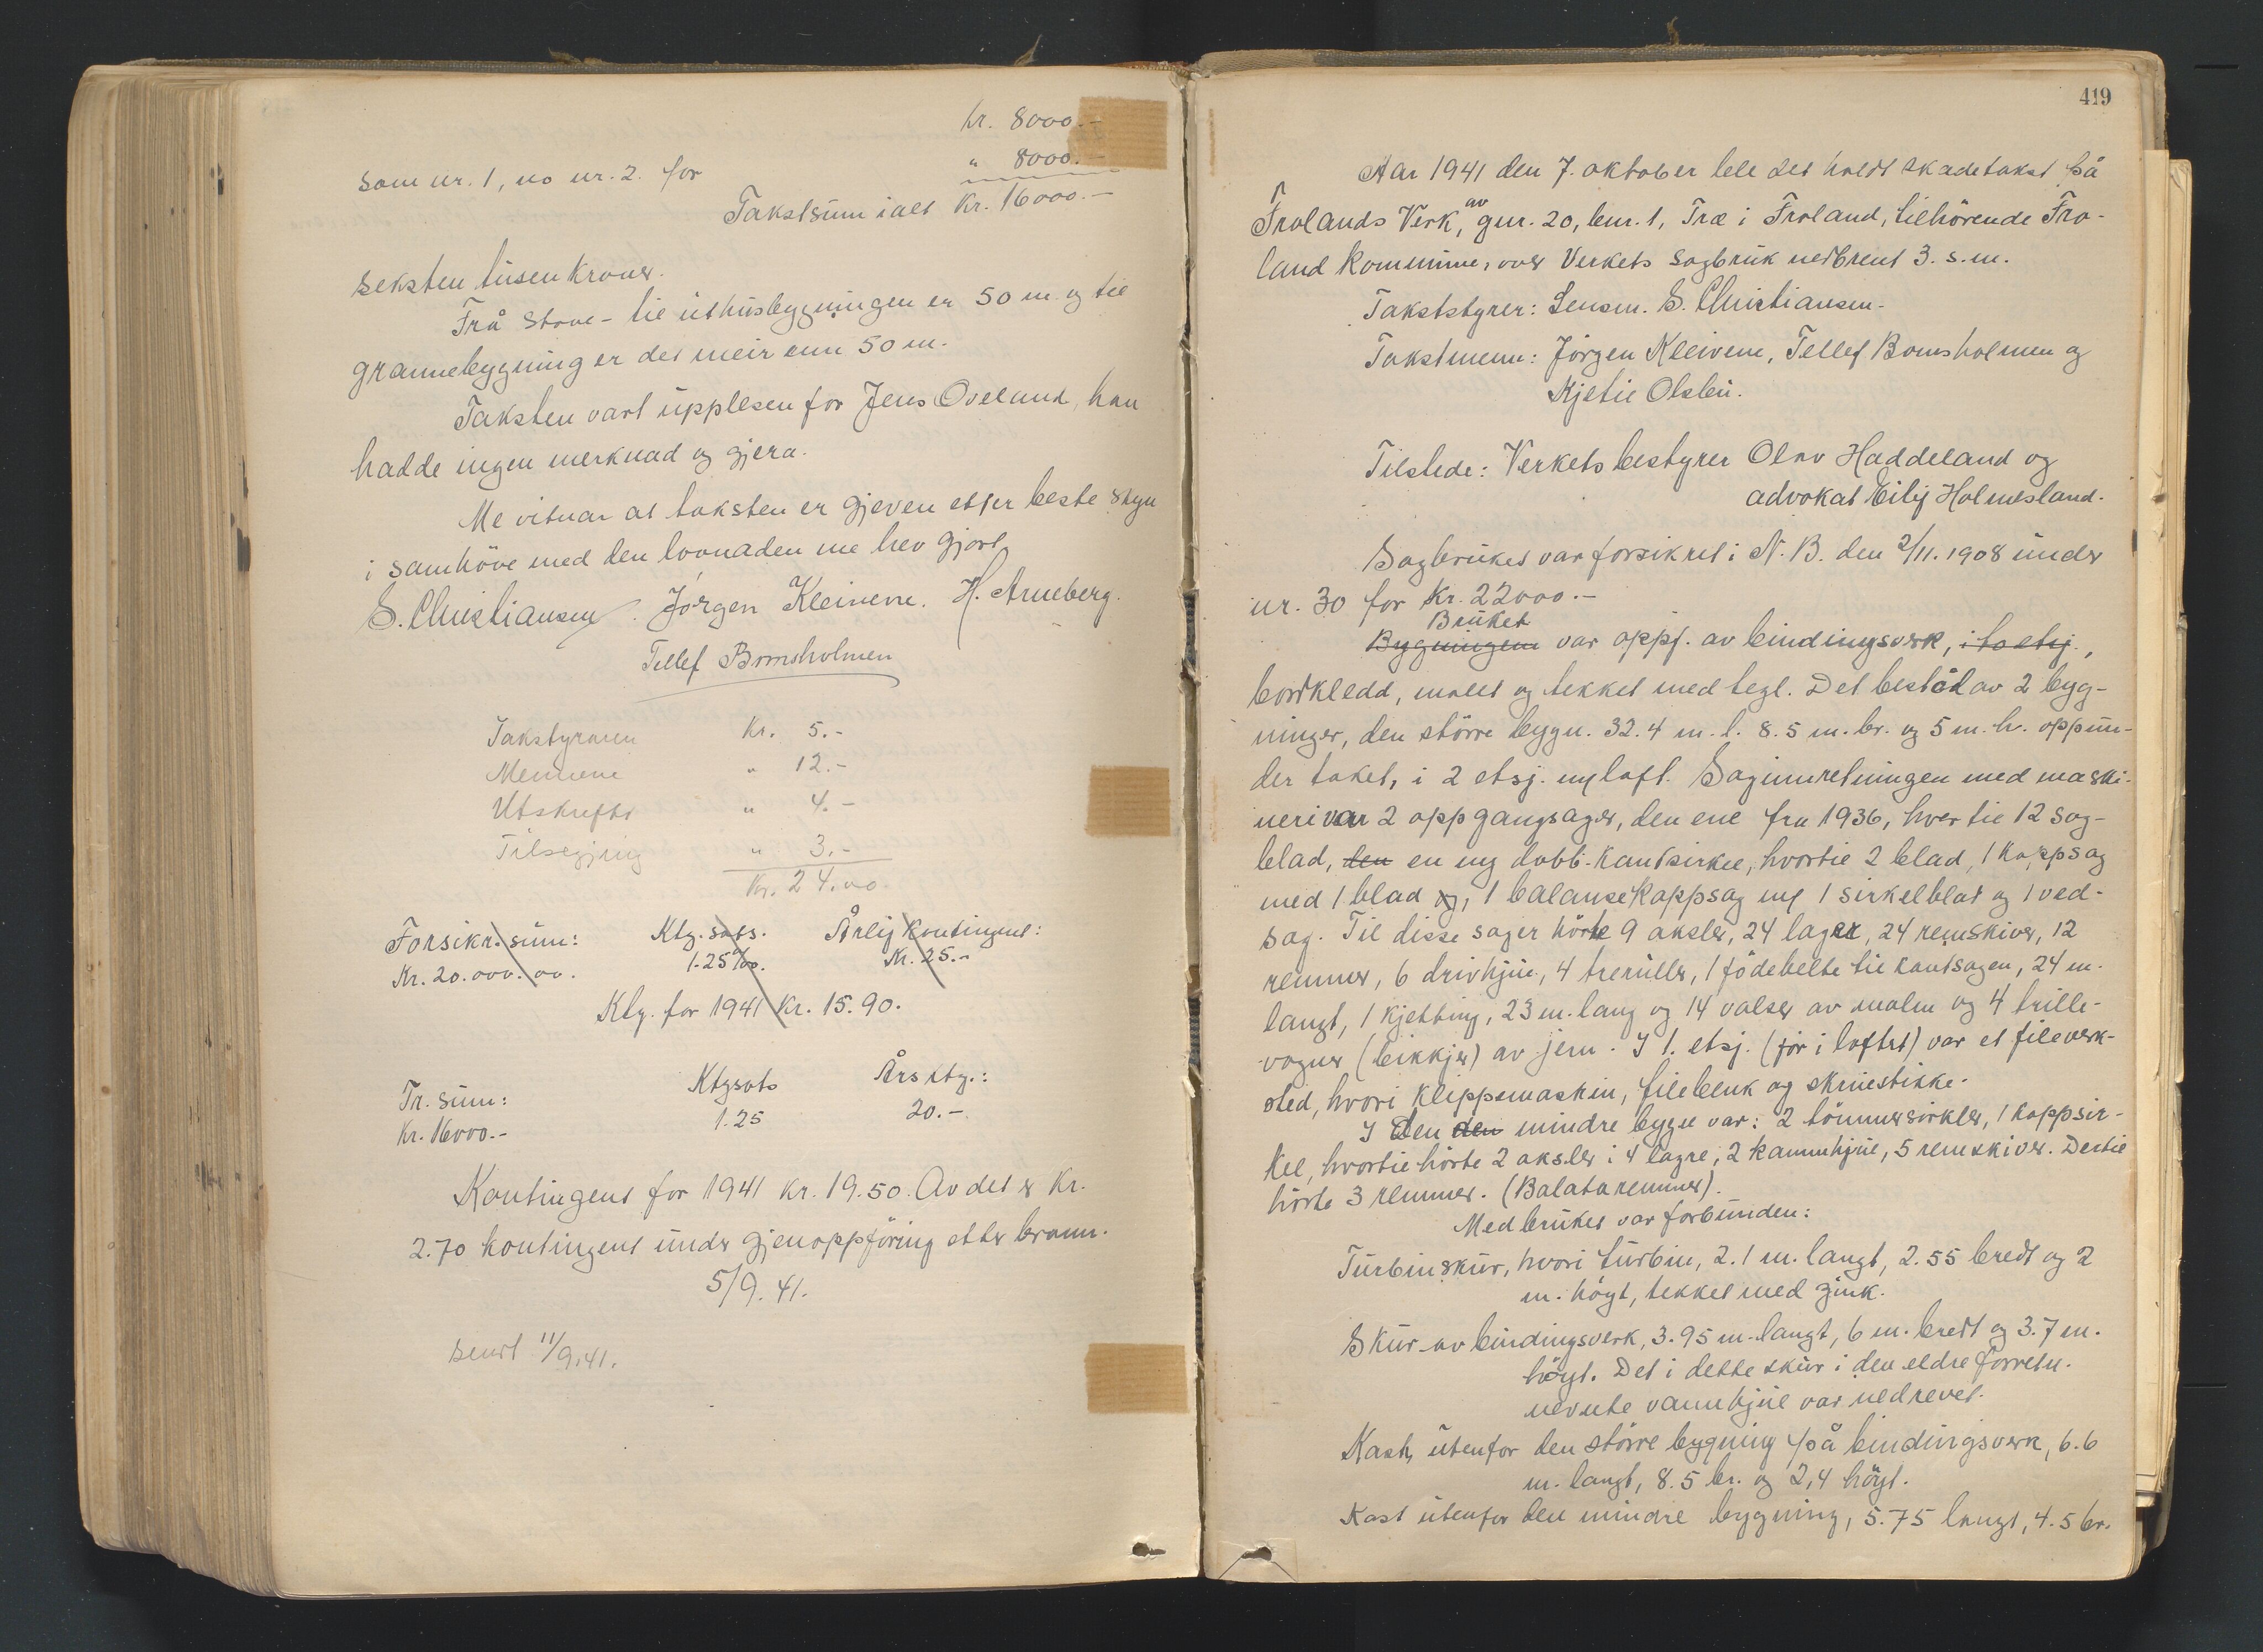 Kr. 8000.-
som nr. 1, no nr. 2. for " 8000.-
Takstsum ialt Kr. 16000.-
seksten tusen kroner.
Frå stove- til uthusbygningen er 50 m. og til
grannebygning er det meir enn 50 m.
Taksten vart upplesen for Jens Oveland, han
hadde ingen merknad og gjera.
Me vitnar at taksten er gjeven etter beste skyn
i samhöve med den lovnaden me hev gjort.
S. Christiansen. Jörgen Kleivene. H. Arneberg.
Tellef Bomsholmen
Takstyraren Kr. 5.-
Mennene " 12.-
Utskrifter " 4.-
Tilsegjing " 3.-
Kr. 24.00.
Forsikr. sum: Ktg. sats. Årlig kontingent:
Kr. 20.000.00. 1.25‰. Kr. 25.-
Ktg. for 1941 Kr. 15.90.
Tr. sum: Ktgsats Årsktg.:
Kr. 16000.- 1.25 20.-
Kontingent for 1941 kr. 19.50. Av det er kr.
2.70 kontingent under gjenoppföring etter brann.
5/9.41.
Sendt 11/9.41.
419
Aar 1941 den 7. oktober ble det holdt skadetakst på
Frolands Verk, av gnr. 20, bnr. 1, Træ i Froland, tilhörende Fro-
land kommune, over Verkets sagbruk nedbrent 3. s.m.
Takststyrer: Lensm. S. Christiansen.
Takstmenn: Jörgen Kleivene, Tellef Bomsholmen og
Kjetil Olsbu.
Tilstede: Verkets bestyrer Olav Haddeland og
advokat Eilif Holmesland.
Sagbruket var forsikret i N.B. den 2/11. 1908 under
nr. 30 for Kr. 22000.-
Bruket
Bygningen var oppf. av bindingsverk, i to etsj.,
bordkledd, malet og tekket med tegl. Det bestod av 2 byg-
ninger, den större bygn. 32.4 m. l. 8.5 m. br. og 5 m. h. oppun-
der taket, i 2 etsj. m/loft. Saginnretningen med maski-
neri var 2 oppgangsager, den ene fra 1936, hver til 12 sag-
blad, den en ny dobb. kantsirkel, hvortil 2 blad, 1 kappsag
med 1 blad og, 1 balansekappsag m/ 1 sirkelblad og 1 ved-
sag. Til disse sager hörte 9 aksler, 24 lager, 24 remskiver, 12
remmer, 6 drivhjul, 4 treruller, 1 födebelte til kantsagen, 24 m.
langt, 1 kjetting, 23 m. lang og 14 valser av malm og 4 trille-
vogner (bikkjer) av jern. I 1. etsj. (för i loftet) var et fileverk-
sted, hvori klippemaskin, filebenk og skruestikke.
I den den mindre bygn var: 2 tömmersirkler, 1 kappsir-
kel, hvortil hörte 2 aksler i 4 lagre, 2 kammhjul, 5 remskiver. Dertil
hörte 3 remmer. (Balataremmer).
Med bruket var forbunden:
Turbinskur, hvori turbin, 2.1 m. langt, 2.55 bredt og 2
m. höyt, tekket med zink.
Skur av bindingsverk, 3.95 m. langt, 6 m. bredt og 3.7 m.
höyt. Det i dette skur i den eldre forretn.
nevnte vannhjul var nedrevet.
Kast, utenfor den större bygning på bindingsverk, 6.6
m. langt, 8.5 br. og 2,4 höyt.
Kast utenfor den mindre bygning, 5.75 langt, 4.5 br.